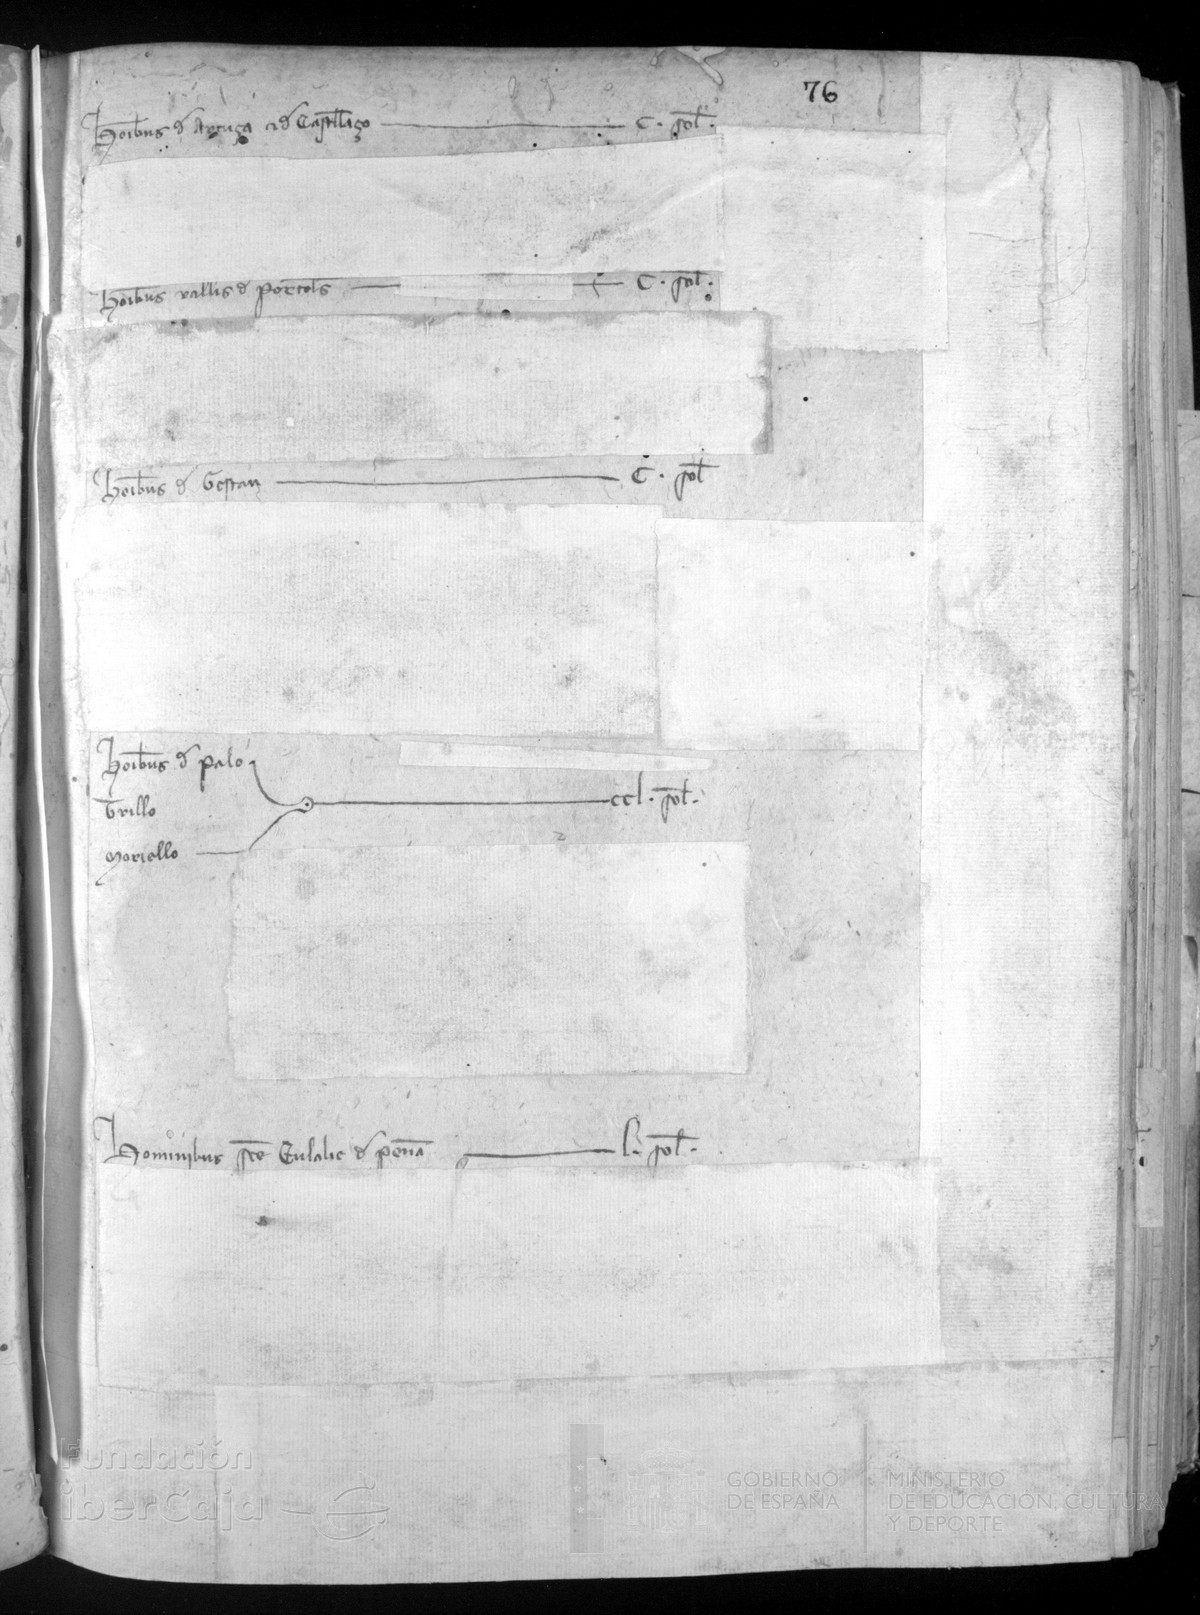 76
Hoibus d Arruga et d Castellaço — C · sol ·
Hoibus vallis d Porcols — C · sol ·
Hoibus d Gestau — C · sol
Hoibus d Palo
Trillo — ccl · sol ·
Moriello
Hominibus sce Eulalie d pena — l · sol ·
Fundación
iberCaja
GOBIERNO
DE ESPAÑA
MINISTERIO
DE EDUCACIÓN, CULTURA
Y DEPORTE